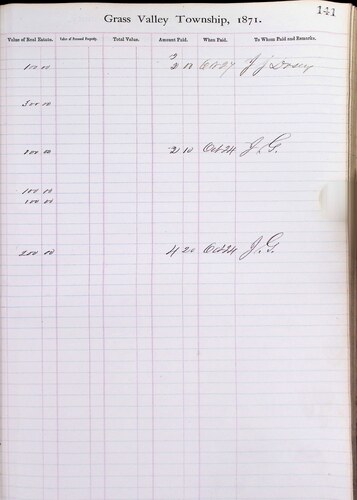 141
Grass Valley Township, 1871.
Value of Real Estate. Value of Personal Property. Total Value. Amount Paid. When Paid. To Whom Paid and Remarks.
100 00 2 10 Oct 27 J J Dorsey
300 00
100 00 2 10 Oct 24 J. G.
100 00
100 00
200 00 4 20 Oct 24 J. G.